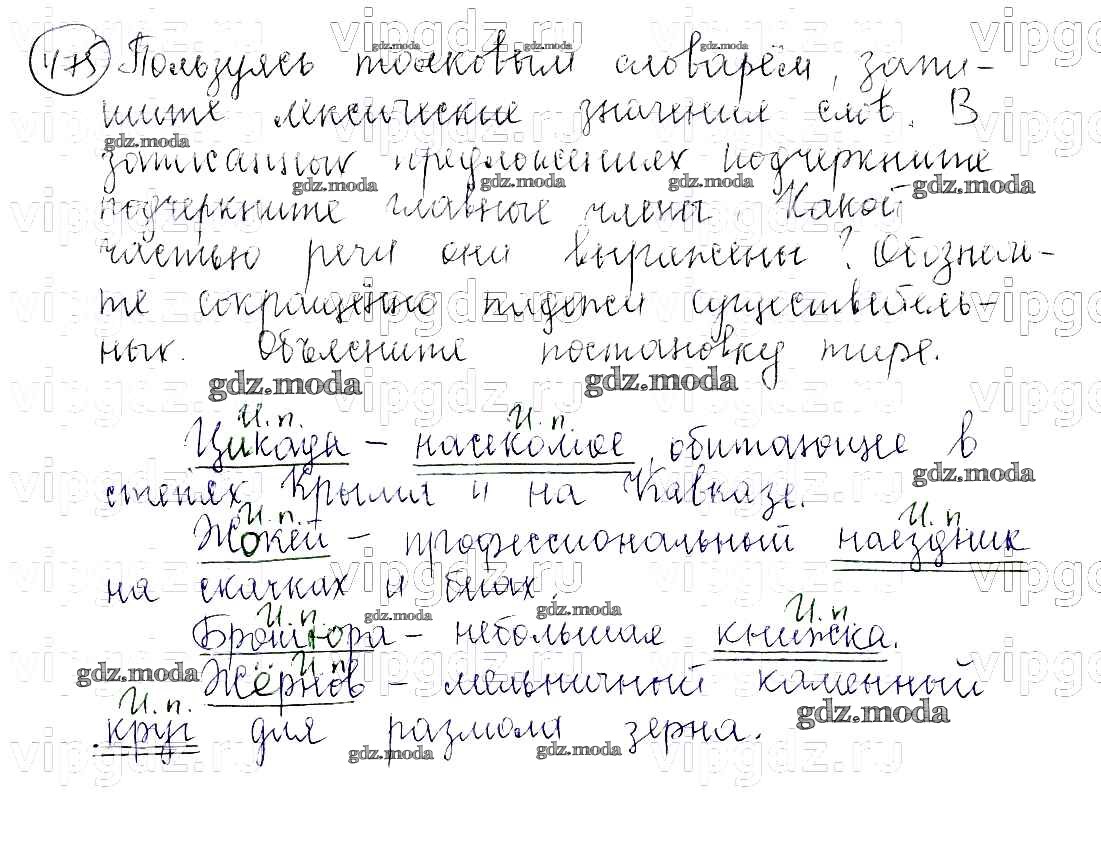 475 Пользуясь толковым словарём, запи-
шите лексические значения слов. В
записанных предложениях подчеркните
подчеркните главные члены. Какой
частью речи они выражены? Обозначь-
те сокращённо падежи существитель-
ных. Объясните постановку тире.
И.п. И.п.
Цикада – насекомое, обитающее в
степях Крыма и на Кавказе.
И.п. И.п.
Жокей – профессиональный наездник
на скачках и бегах.
И.п. И.п.
Брошюра – небольшая книжка.
И.п.
Жёрнов – мельничный каменный
И.п.
круг для размола зерна.